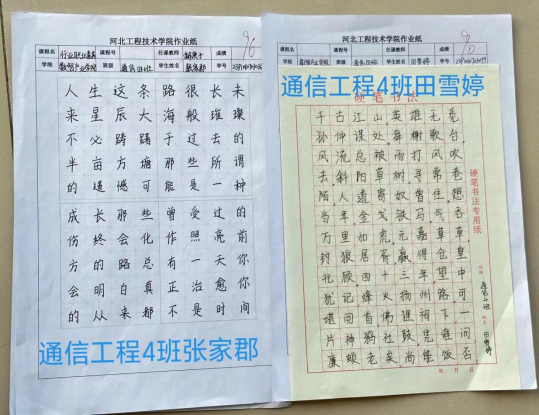 河北工程技术学院作业纸
课程名称
课程号
任课教师
成绩
96
学院
班级
通信四班
学生姓名
学号
人生这条路很长未
来星辰大海般璀璨
不必踌躇于过去的
半亩方塘那些所谓
的遗憾可能是一种
成长那些曾受过的
伤终会化作照亮前
方的路总有一天你
会明白真正治愈你
的从来都不是时间
通信工程4班张家郡
河北工程技术学院作业纸
课程名称
课程号
任课教师
成绩
90
学院
班级
通信四班
学生姓名
田雪婷
学号
通信工程4班田雪婷
硬笔书法
千古江山英雄无觅
孙仲谋处舞榭歌台
风流总被雨打风吹
去斜阳草树寻常巷
陌人道寄奴曾住想
当年金戈铁马气吞
万里如虎元嘉草草
封狼居胥赢得仓皇
北顾四十三年望中
犹记烽火扬州路可
堪回首佛狸祠下一
片神鸦社鼓凭谁问
廉颇老矣尚能饭否
硬笔书法专用纸
班级
通信四班
姓名
田雪婷
年 月 日